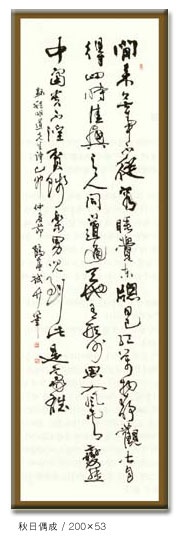 閒來無事不從容睡覺東牕日已紅萬物靜觀皆自
得四時佳興與人同道通天地有形外思入風雲變態
中富貴不淫貧賤樂男兒到此是豪雄
程明道先生詩己卯仲春節
秋日偶成 / 200×53